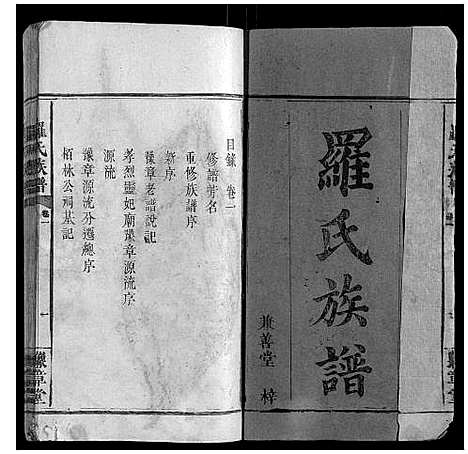 羅氏族譜
兼善堂 梓
豫章堂
目錄 卷一
修譜芳名
重修族譜序
新序
豫章老譜説記
孝烈靈妃廟豫章源流序
源流
豫章源流分遷總序
栢林公祠墓記
羅氏族譜
卷一
一
豫章堂